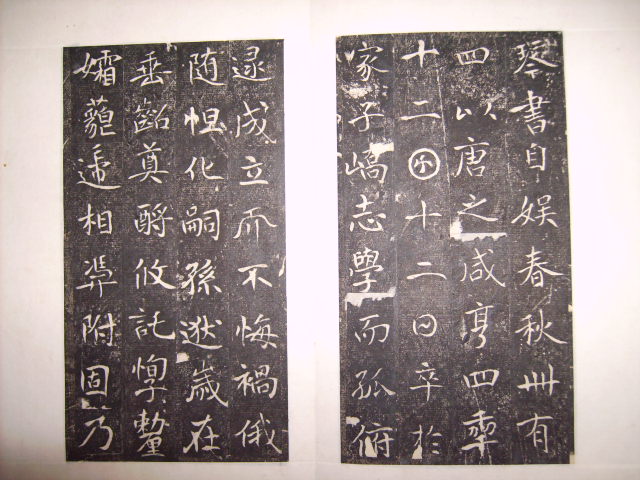 琴書自娱春秋卌有
四以唐之咸亨四𠡦
十二囝十二日卒於
家子嶠志學而孤俯
逮成立而不悔禍俄
随怛化嗣孫逖歲在
垂齠奠酹攸託惸嫠
孀藐遞相憑附固乃